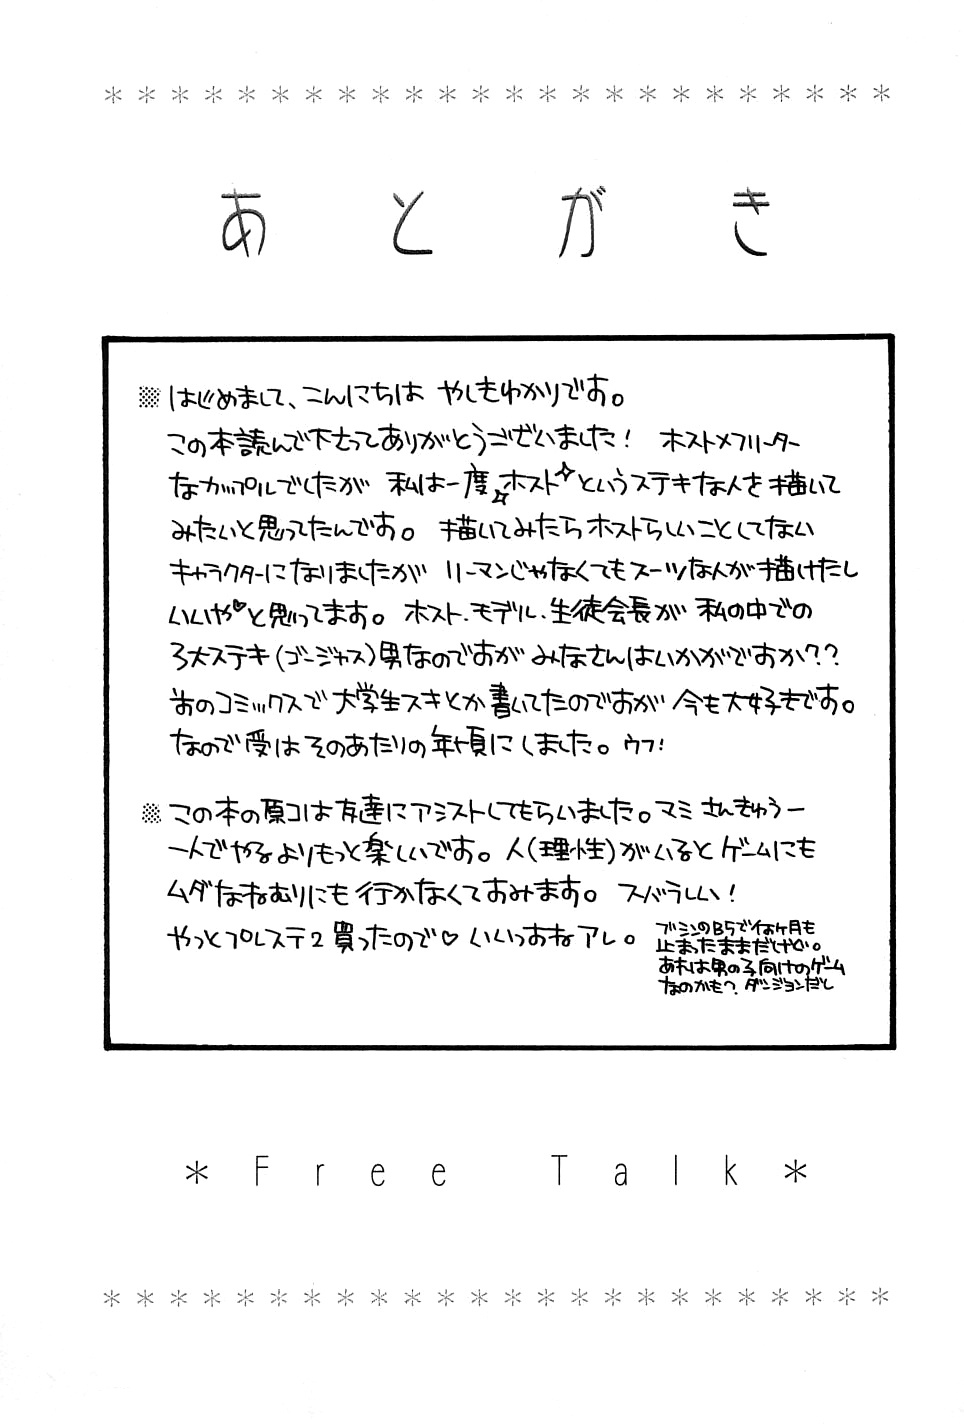 ＊＊＊＊＊＊＊＊＊＊＊＊＊＊＊＊＊＊＊＊＊＊＊＊
あとがき
はじめまして、こんにちは やしもわかりです。
この本読んで下さってありがとうございました! ホスト×フリーター
なカップルでしたが 私は一度ホストというステキな人を描いて
みたいと思ってたんです。 描いてみたらホストらしいことしてない
キャラクターになりましたが リーマンじゃなくてもスーツな人が描けたし
いいや♥と思ってます。 ホスト、モデル、生徒会長が 私の中での
3大ステキ(ゴージャス)男なのですが みなさんはいかがですか??
前のコミックスで 大学生スキとか書いてたのですが 今も大好きです。
なので受はそのあたりの年頃にしました。ウフ!
この本の原コは友達にアシストしてもらいました。マミさんきゅうー
一人でやるよりもっと楽しいです。人(理性)がいるとゲームにも
ムダなねむりにも行かなくてすみます。 スバラしい!
やっとプレステ2買ったので♡いいっすねアレ。
ブシンのB5で何ヶ月も
止まったままだけど。
あれは男の子向けのゲーム
なのかも?ダンジョンだし
＊Free Talk＊
＊＊＊＊＊＊＊＊＊＊＊＊＊＊＊＊＊＊＊＊＊＊＊＊